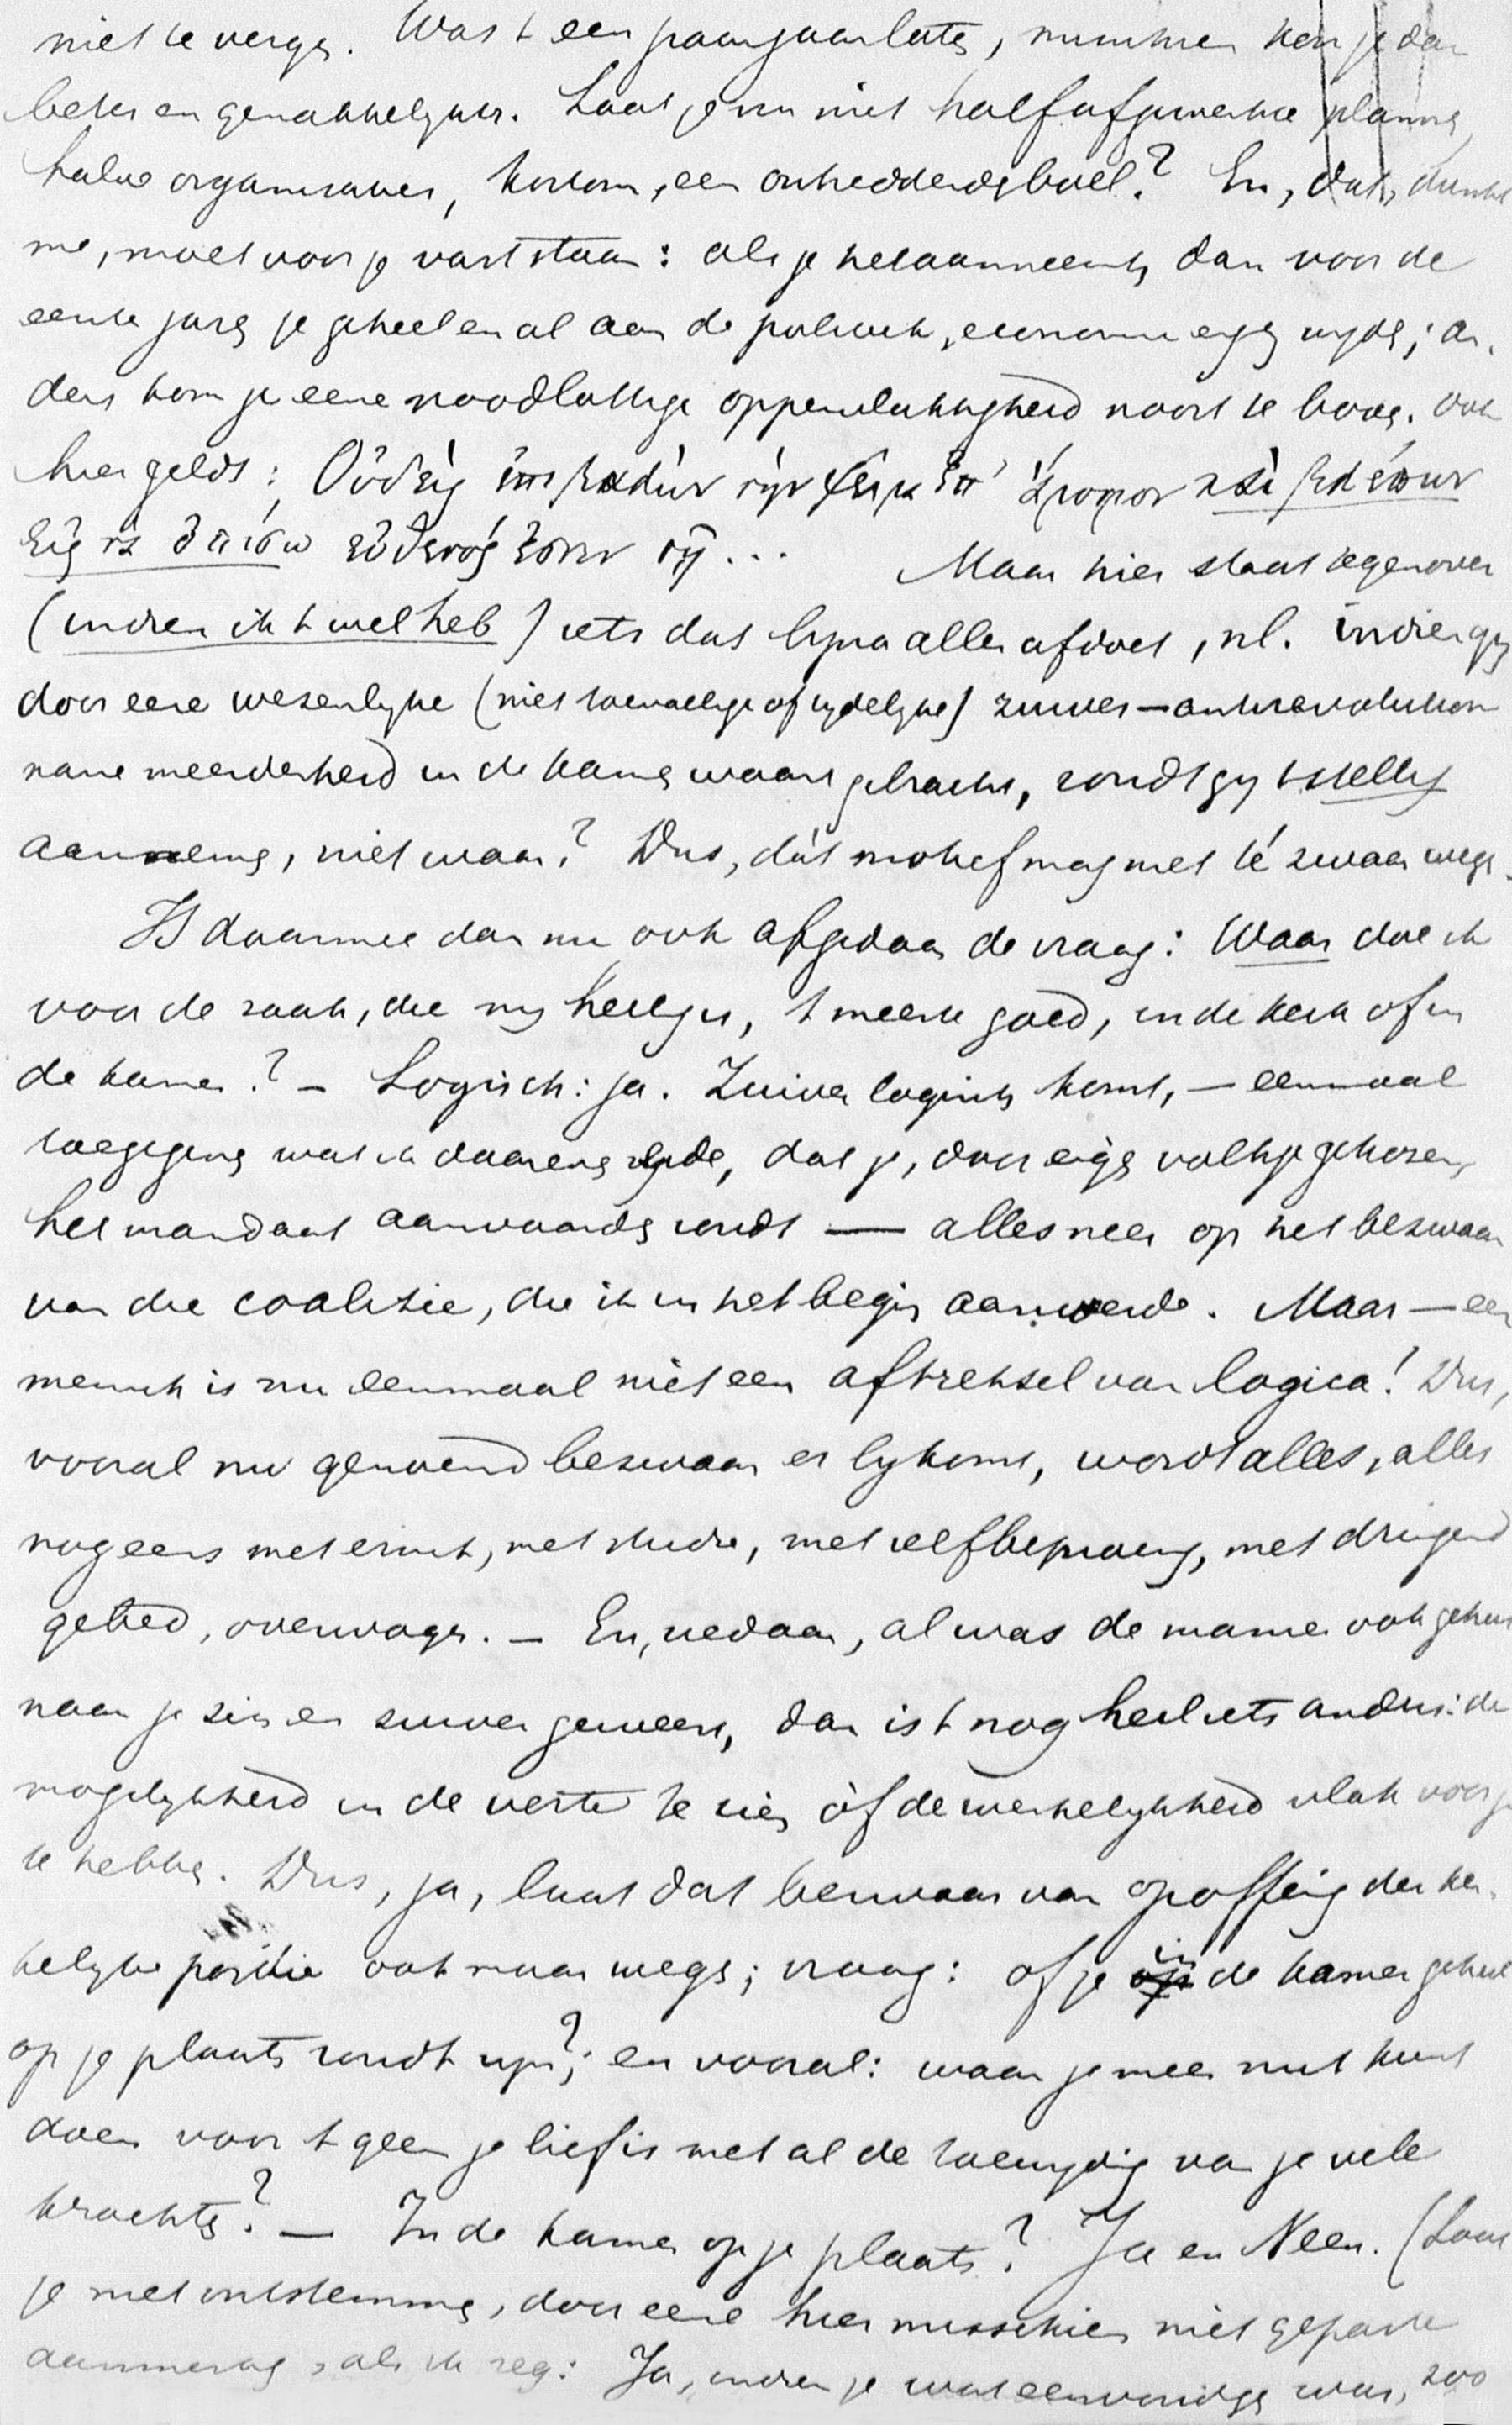 niet te vergen. Was 't een paar jaar later, misschien kon je dan
beter en gemakkelijker. Laat je nu niet half afgewerkte plannen,
halve organisaties, kortom, een onredderde boel? En, dat, dunkt
me, moet voor je vaststaan: als je het aanneemt, dan voor de
eerste jaren je geheel en al aan de politiek, economie enz. wijden; an-
ders kom je eene noodlottige oppervlakkigheid nooit te boven. Ook
hier geldt: Οὐδεὶς ἐπιβαλὼν τὴν χεῖρα ἐπ' ἄροτρον καὶ βλέπων
εἰς τὰ ὀπίσω εὔθετός ἐστιν τῇ ... Maar hier staat tegenover
(indien ik 't wel heb) iets dat bijna alles afdoet, nl. indien gij
door eene wezenlijke (niet toevallige of tijdelijke) zuiver-antirevolution
naire meerderheid in de kamer waart gebracht, zoudt gij 't stellig
aannemen, niet waar? Dus, dát motief mag niet té zwaar wegen.
Is daarmee dan nu ook afgedaan de vraag: Waar doe ik
voor de zaak, die mij heilig is, 't meeste goed, in de kerk of in
de kamer? – Logisch: ja. Zuiver logisch komt, – eenmaal
toegegeven wat ik daareven zeide, dat je, door eigen volkje gekozen,
het mandaat aanvaarden zoudt — alles neer op het bezwaar
van die coalitie, die ik in het begin aanvoerde. Maar – een
mensch is nu eenmaal niet een aftreksel van logica! Dus,
vooral nu genoemd bezwaar er bijkomt, wordt alles, alles
nog eens met ernst, met studie, met zelfbeproeving, met dringend
gebed, overwogen. – En, nedaan, al was de manier ook geheel
naar je zin en zuiver geweest, dan is 't nog heel iets anders: de
mogelijkheid in de verte te zien òf de werkelijkheid vlak voor je
te hebben. Dus, ja, laat dat bezwaar van opoffering der ker-
kelijke positie ook maar wegen; vraag: of je in de kamer geheel
op je plaats zoudt zijn?; en vooral: waar je meer nut kunt
doen voor 't geen je lief is met al de toewijding van je vele
krachten? – In de kamer op je plaats? Ja en Neen. (Laat
je niet ontstemmen, door eene hier misschien niet gepaste
aanmerking, als ik zeg: Ja, indien je wat eenvoudiger was, zoo